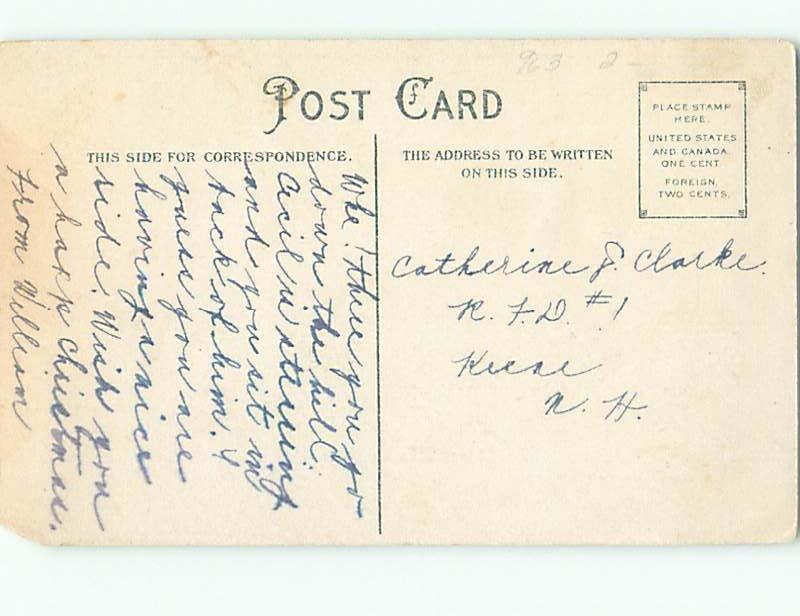 POST CARD
THIS SIDE FOR CORRESPONDENCE.
THE ADDRESS TO BE WRITTEN
ON THIS SIDE.
PLACE STAMP
HERE.
UNITED STATES
AND CANADA.
ONE CENT.
FOREIGN,
TWO CENTS.
Whe! there you go
down the hill.
Cecil is steering
and you sit in
back of him. I
guess you are
having a nice
ride. Wish you
a harp Christmas.
From William
Catherine J. Clarke.
R. F. D. #1
Keene
N. H.